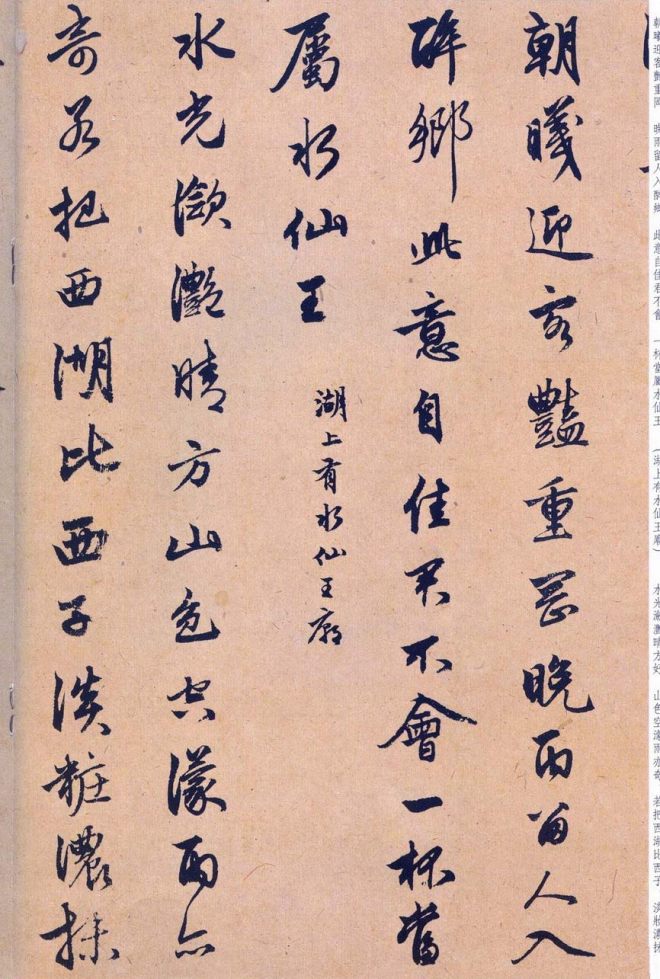 朝曦迎客艷重岡 晚雨留人入醉鄉 此意自佳君不會 一杯當屬水仙王 (湖上有水仙王廟) 水光瀲灩晴方好 山色空濛雨亦奇 若把西湖比西子 淡妝濃抹
朝曦迎客豔重岡晚雨留人入
醉鄉此意自佳君不會一杯當
屬水仙王
湖上有水仙王廟
水光瀲灩晴方山色空濛雨亦
奇若把西湖比西子淡粧濃抹